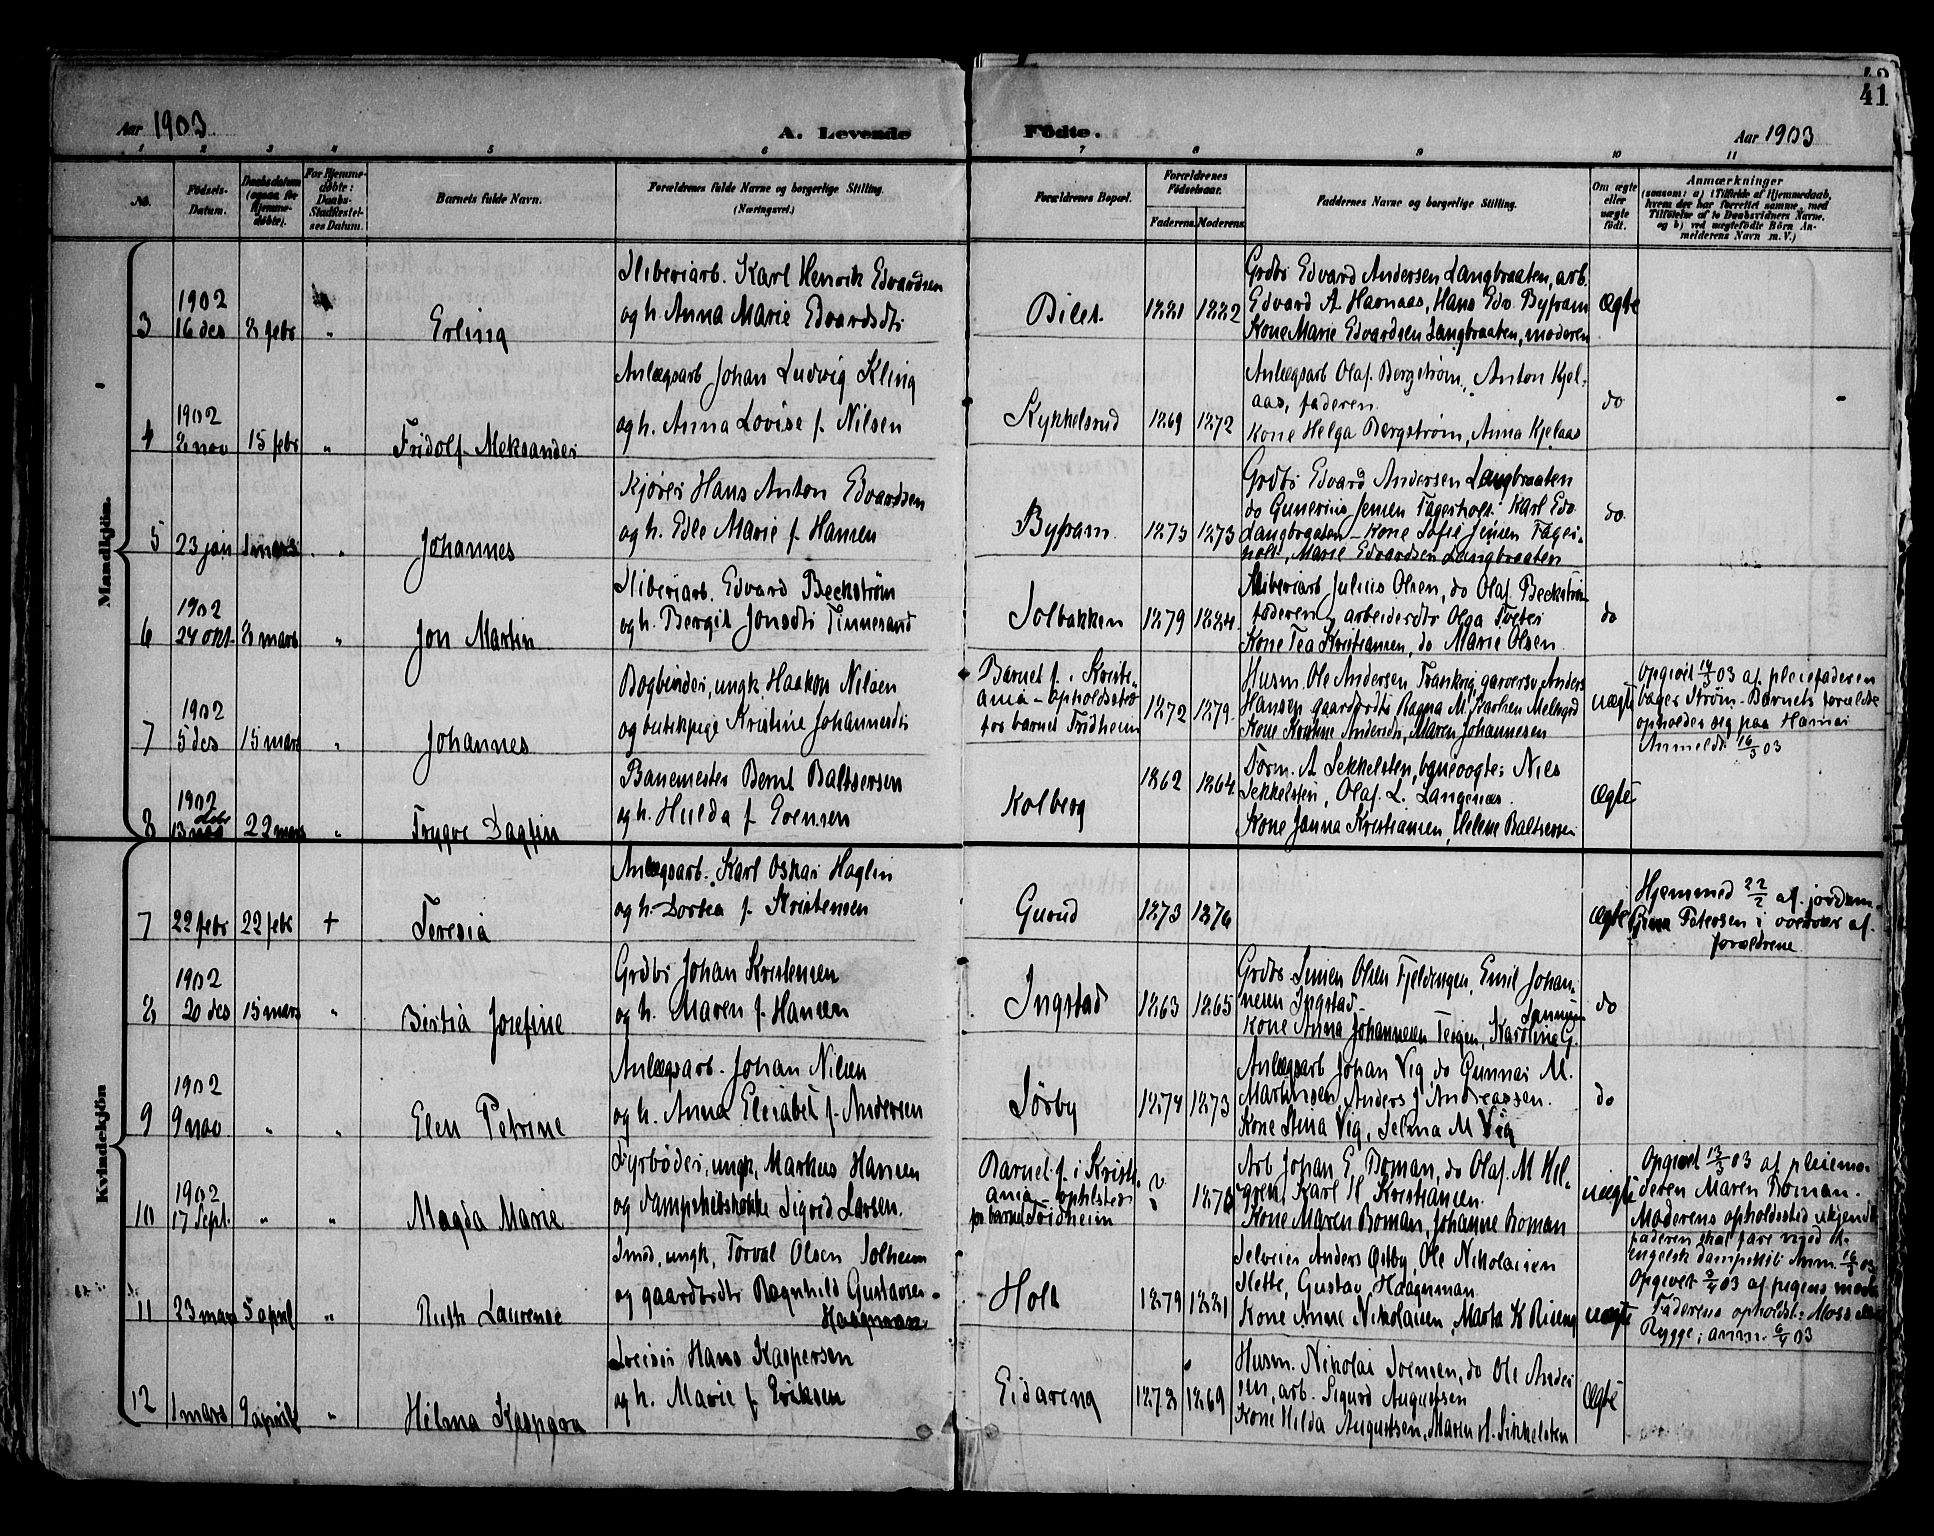 41
Aar 1903
A. Levende
Fødte.
Aar 1903
1 2 3 4 5 6 7 8 9 10 11
No.
Fødsels-Datum.
Daabsdatum (ogsaa for Hjemmedøbte).
For Hjemmedøbte: Daabs-Stadfæstelses Datum.
Barnets fulde Navn.
Forældrenes fulde Navne og borgerlige Stilling. (Næringsvei.)
Forældrenes Bopæl.
Forældrenes Fødselsaar.
Faderens. Moderens.
Faddernes Navne og borgerlige Stilling.
Om ægte eller uægte født.
Anmærkninger
(saasom: a) i Tilfælde af Hjemmedaab, hvem der har forrettet samme, med Tilføielse af to Daabsvidners Navne, og b) ved uægtefødte Børn Anmelderens Navn m. V.)
Mandkjön.
3 1902 16 des 8 febr " Erling
Sliberiarb. Karl Henrik Edvardsen
og h. Anna Marie Edvardsdtr
Bilet. 1881 1882
Grdbr Edvard Andersen Langbraaten, arb.
Edvard A Havnaas, Hans Edv. Byfram
Kone Marie Edvardsen Langbraaten, moderen
Ægte
4 1902 8 nov 15 febr " Fridolf Aleksander
Anlægsarb Johan Ludvig Kling
og h. Anna Lovise f. Nilsen
Kykkelsrud 1869 1872
Anlægsarb Olaf Bergstrøm, Anton Kjel-
aas, faderen
Kone Helga Bergstrøm, Anna Kjelaas
do
5 23 jan 1 mars " Johannes
Kjører Hans Anton Edvardsen
og h. Edle Marie f. Hansen
Byfram 1875 1873
Grdbr Edvard Andersen Langbraaten
do Gunerius Jensen Fagerholt. Karl Edv
Langbraaten - Kone Sofie Jensen Fager-
holt, Marie Edvardsen Langbraaten
do
6 1902 24 okt. 8 mars " Jon Martin
Sliberiarb. Edvard Beckstrøm
og h. Bergit Jonsdtr Tinnesand
Solbakken 1879 1884
Sliberiarb Julius Olsen, do Olaf Beckstrøm
faderen, arbeiderdtr Olga
Kone Tea Kristiansen, do Marie Olsen
do
7 1902 5 des 15 mars " Johannes
Bogbinder, ungk. Haakon Nilsen
og butikpige Kristine Johannesdtr
Barnet f. i Kristi-
ania - opholdssted
for barnet Fridheim
1872 1879
Husm. Ole Andersen, garversv Anders
Hansen gaardbrdtr Ragna M. Karlsen
Kone Andersen, Maren Johannesen
uægte
Opgivet 14/3 03 af pleiefaderen
bager Strøm. Barnets forældre
opholder sig paa Hamar
Anmeldt 16/3 03
8 1902 13 nov 22 mars " Trygve Dagfin
Banemester Bernt Baltsersen
og h. Hulda f. Evensen
Kolberg 1862 1864
Form. A Sekkelsten, banevogter Nils
Sekkelsten, Olaf. L. Langenæs.
Kone Janna Kristiansen, Helene Baltsersen
Ægte
Kvindekjön
7 22 febr 22 febr + Teresia
Anlægsarb. Karl Oskar Haglin
og h. Dortea f. Kristensen
Gurud 1873 1876
Ægte
Hjemmed 22/2 af jordem.
Petersen i overvær af
forældrene
8 1902 20 des 15 mars " Bertia Josefine
Grdbr Johan Kristensen
og h. Maren f. Hansen
Ingstad 1863 1865
Grdbr. Simen Olsen Fjeldengen, Emil Johan-
nesen Ingstad
Kone Anna Johannesen Teigen, Karoline G.
do
9 1902 9 nov " " Elen Petrine
Anlægsarb. Johan Nilsen
og h. Anna Elisabet f. Andersen
Sørby 1874 1873
Anlægsarb Johan Vig, do Gunnar M.
Martinsen, Anders J Andreassen.
Kone Stina Vig, Selma M Vig
do
10 1902 17 Sept. " " Magda Marie
Fyrbøder, ungk. Markus Hansen
og Dampskibskokke Sigrid Larsen.
Barnet f. i Kristi-
ania - opholsted
for barnet Fridheim
? 1878
Arb Johan E. Boman, do Olaf M Hel-
gren, Karl H. Kristiansen.
Kone Maren Boman, Johanne Boman
uægte
Opgivet 13/3 03 af pleiemo-
deren Maren Boman.
Moderens opholdssted ukjendt
faderen skal fare med et
engelsk dampskib Anm. 16/3 03
11 23 mars 5 april " Ruth Laurense
Smed, ungk. Torval Olsen Solheim
og gaardbrdtr Ragnhild Gustavsen
Haagenman
Holt 1879 1881
Selveier Anders Østby, Ole Nikolaisen
Slette, Gustav Haagenman
Kone Anne Nikolaisen, Marta K
uægte
Opgivet 3/4 03 af pigens moder
Faderens opholdst: Moss eller
Rygge; anm. 6/4 03
12 1 mars 9 april " Hilma Kaspara
Sveiser Hans Kaspersen
og h. Marie f. Eriksen
Eidareng 1873 1869
Husm. Nikolai Svensen, do Ole Ander
sen, arb. Sigurd Augustsen
Kone Hilda Augustsen, Maren A. Sekkelsten
Ægte